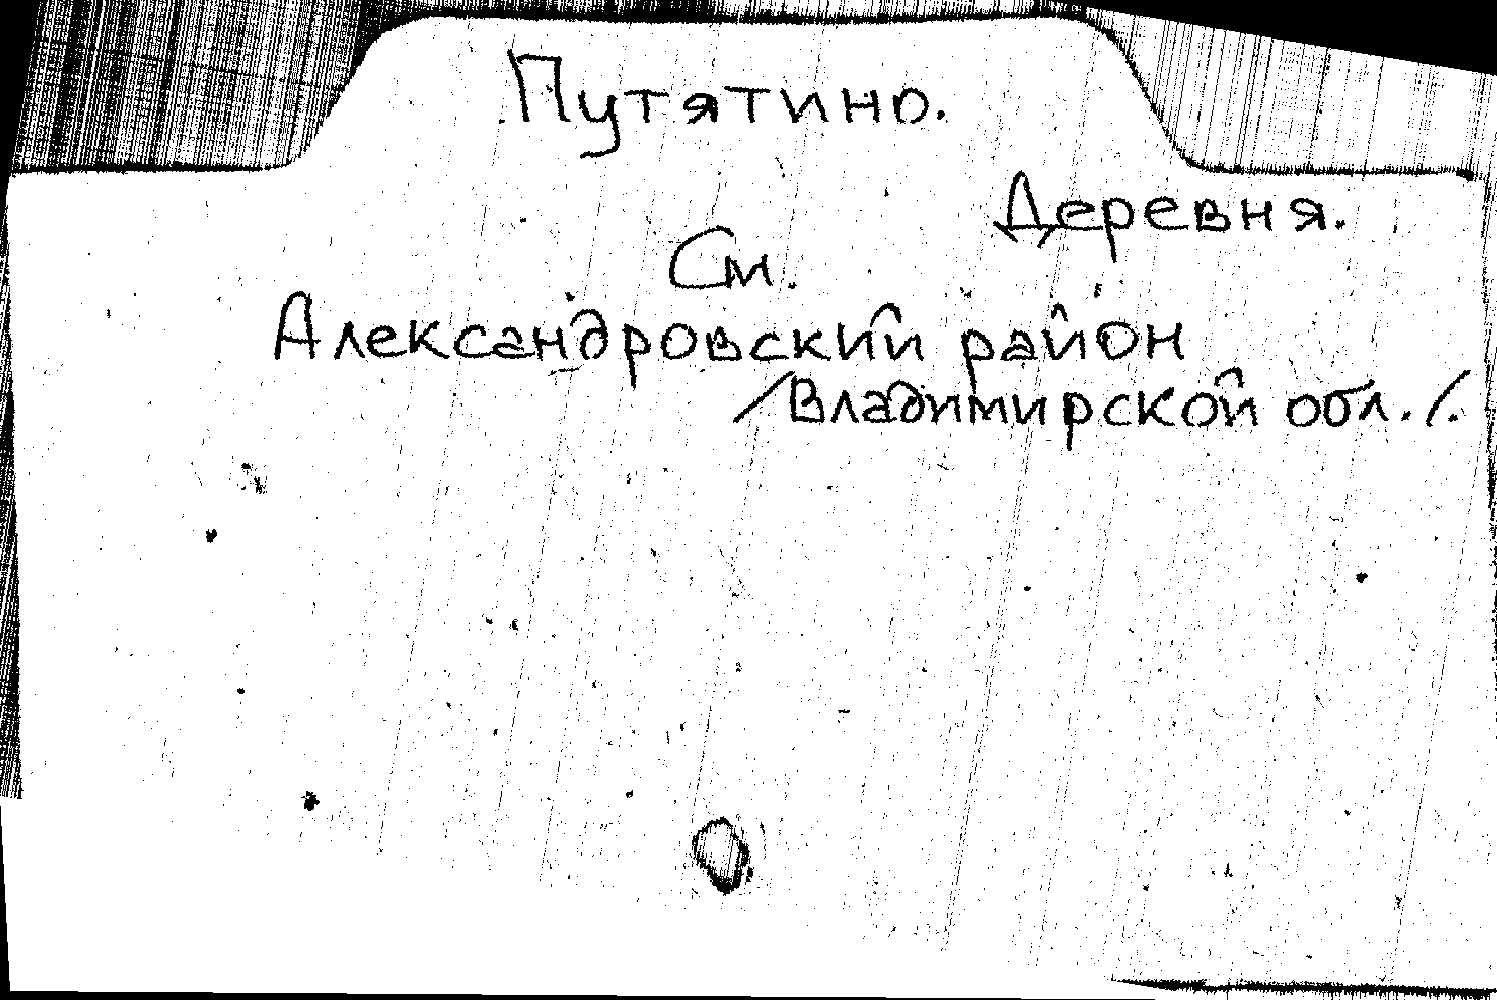 Путятино.
Деревня.
См.
Александровский район
/Владимирской обл./.